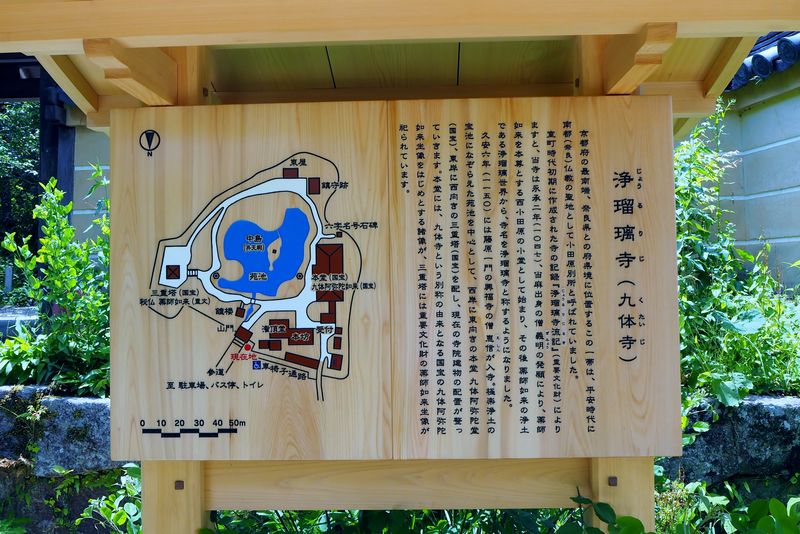 浄瑠璃寺（九体寺）
じょうるりじ くたいじ
京都府の最南端、奈良県との府県境に位置するこの一帯は、平安時代に
南都（奈良）仏教の聖地として小田原別所と呼ばれていました。
室町時代初期に作成された寺の記録『浄瑠璃寺流記』（重要文化財）により
ますと、当寺は永承二年（一〇四七）、當麻出身の僧 義明の発願により、薬師
如来を本尊とする西小田原の小堂として始まり、その後 薬師如来の浄土
である浄瑠璃世界から、寺名を浄瑠璃寺と称するようになりました。
久安六年（一一五〇）には藤原一門の興福寺の僧 恵信が入寺。極楽浄土の
宝池になぞらえた苑池を中心として、西岸に東向きの本堂 九体阿弥陀堂
（国宝）、東岸に西向きの三重塔（国宝）を配し、現在の寺院建物の配置が整っ
ていきます。本堂には、九体寺という別称の由来となる国宝の九体阿弥陀
如来坐像をはじめとする諸像が、三重塔には重要文化財の薬師如来坐像が
祀られています。
N
東屋
鎮守跡
六字名号石碑
中島
（弁天祠）
苑池
本堂（国宝）
九体阿弥陀如来（国宝）
三重塔（国宝）
秘仏 薬師如来（重文）
鐘楼
山門
潅頂堂
本坊
受付
現在地
車椅子通路
参道
至 駐車場、バス停、トイレ
0 10 20 30 40 50m